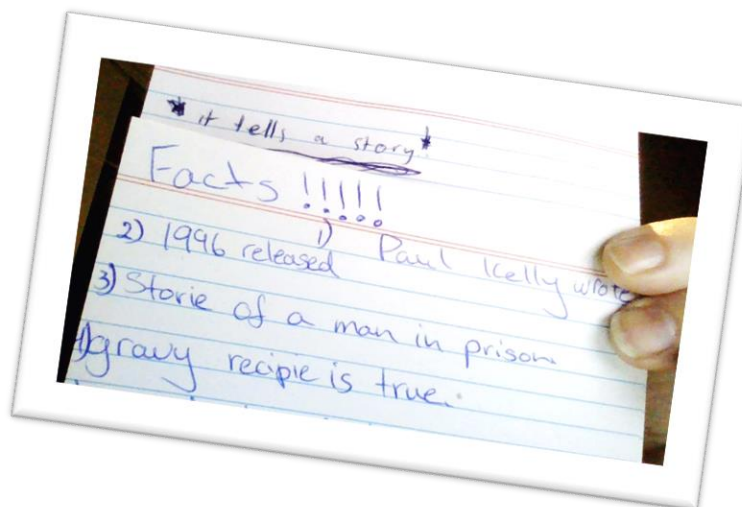 *it tells a story*
Facts !!!!!
1) Paul Kelly wrote
2) 1996 released
3) Storie of a man in prison
4) gravy recipie is true.